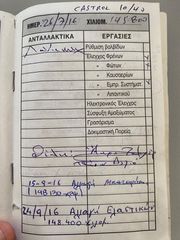 CASTROL 10/40
ΗΜΕΡ. 26/7/16 ΧΙΛΙΟΜ. 145.800
ΑΝΤΑΛΛΑΚΤΙΚΑ ΕΡΓΑΣΙΕΣ
Ρύθμιση βαλβίδων
Έλεγχος Φρένων
» Φώτων
» Καυσαερίων
» Εμπρ. Σύστημα
» Λιπαντικού
Ηλεκτρονικός Έλεγχος
Σύσφιξη Αμαξώματος
Γρασάρισμα
Δοκιμαστική Πορεία
15-9-16 Αλλαγή Μπαταρίας
148.130 χλμ
24/9/16 Αλλαγή Ελαστικών
148.400 χλμ